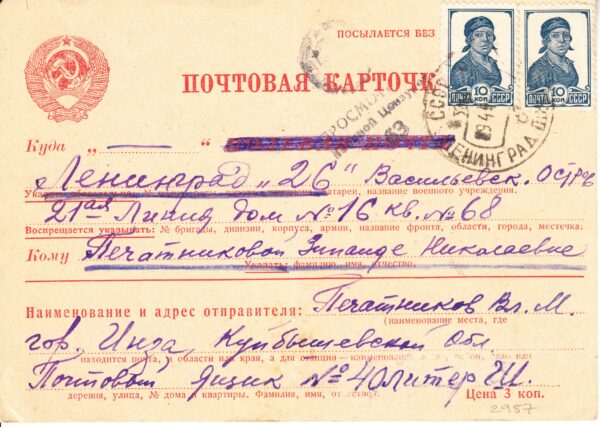 ПОСЫЛАЕТСЯ БЕЗ
ПОЧТОВАЯ КАРТОЧК
10 КОП. ПОЧТА СССР
10 КОП. ПОЧТА СССР
СССР
ЛЕНИНГРАД
ПРОСМО
Ценз
63
Куда „ — “
Ленинград „26“ Васильевск. Остров
название военного учреждения.
21ая Линия дом №16 кв. №68
Воспрещается указывать: № бригады, дивизии, корпуса, армии, название фронта, области, города, местечка.
Кому Печатниковой Зинаиде Николаевне
Указать: фамилию, имя, отчество.
Наименование и адрес отправителя: Печатников Вл. М.
(наименование места, где
гор. Инза, Куйбышевской Обл.
находится почта, и области или края, а для станции – наименование
Почтовый ящик №40 литер Ш.
деревня, улица, № дома и квартиры. Фамилия, имя, отчество). Цена 3 коп.
2987